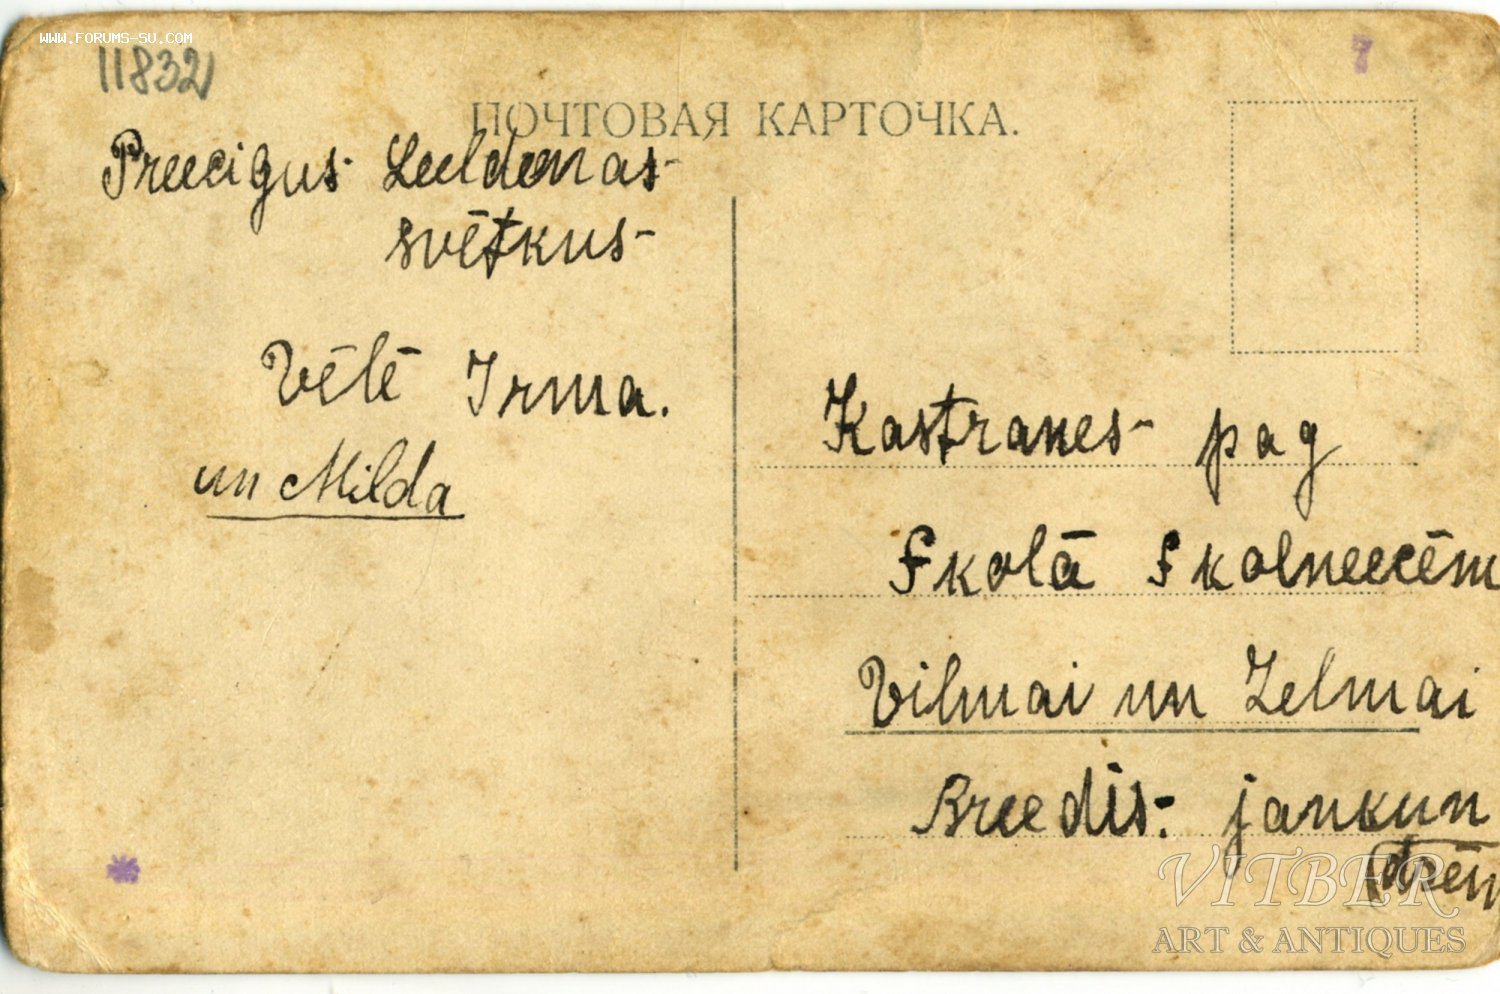 WWW.FORUMS-SU.COM
11832
7
ПОЧТОВАЯ КАРТОЧКА.
Preecigus Leeldenas
svētkus
Vēlē Irma.
un Milda
Kastranes pag
Skolā Skolneecēm
Vilmai un Zelmai
Breedis. jankun
dzēm
VITBER
ART & ANTIQUES